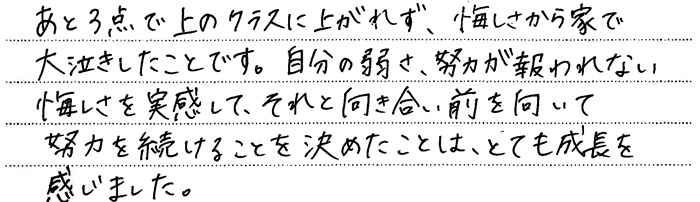 あと3点で上のクラスに上がれず、悔しさから家で
大泣きしたことです。自分の弱さ、努力が報われない
悔しさを実感して、それと向き合い前を向いて
努力を続けることを決めたことは、とても成長を
感じました。